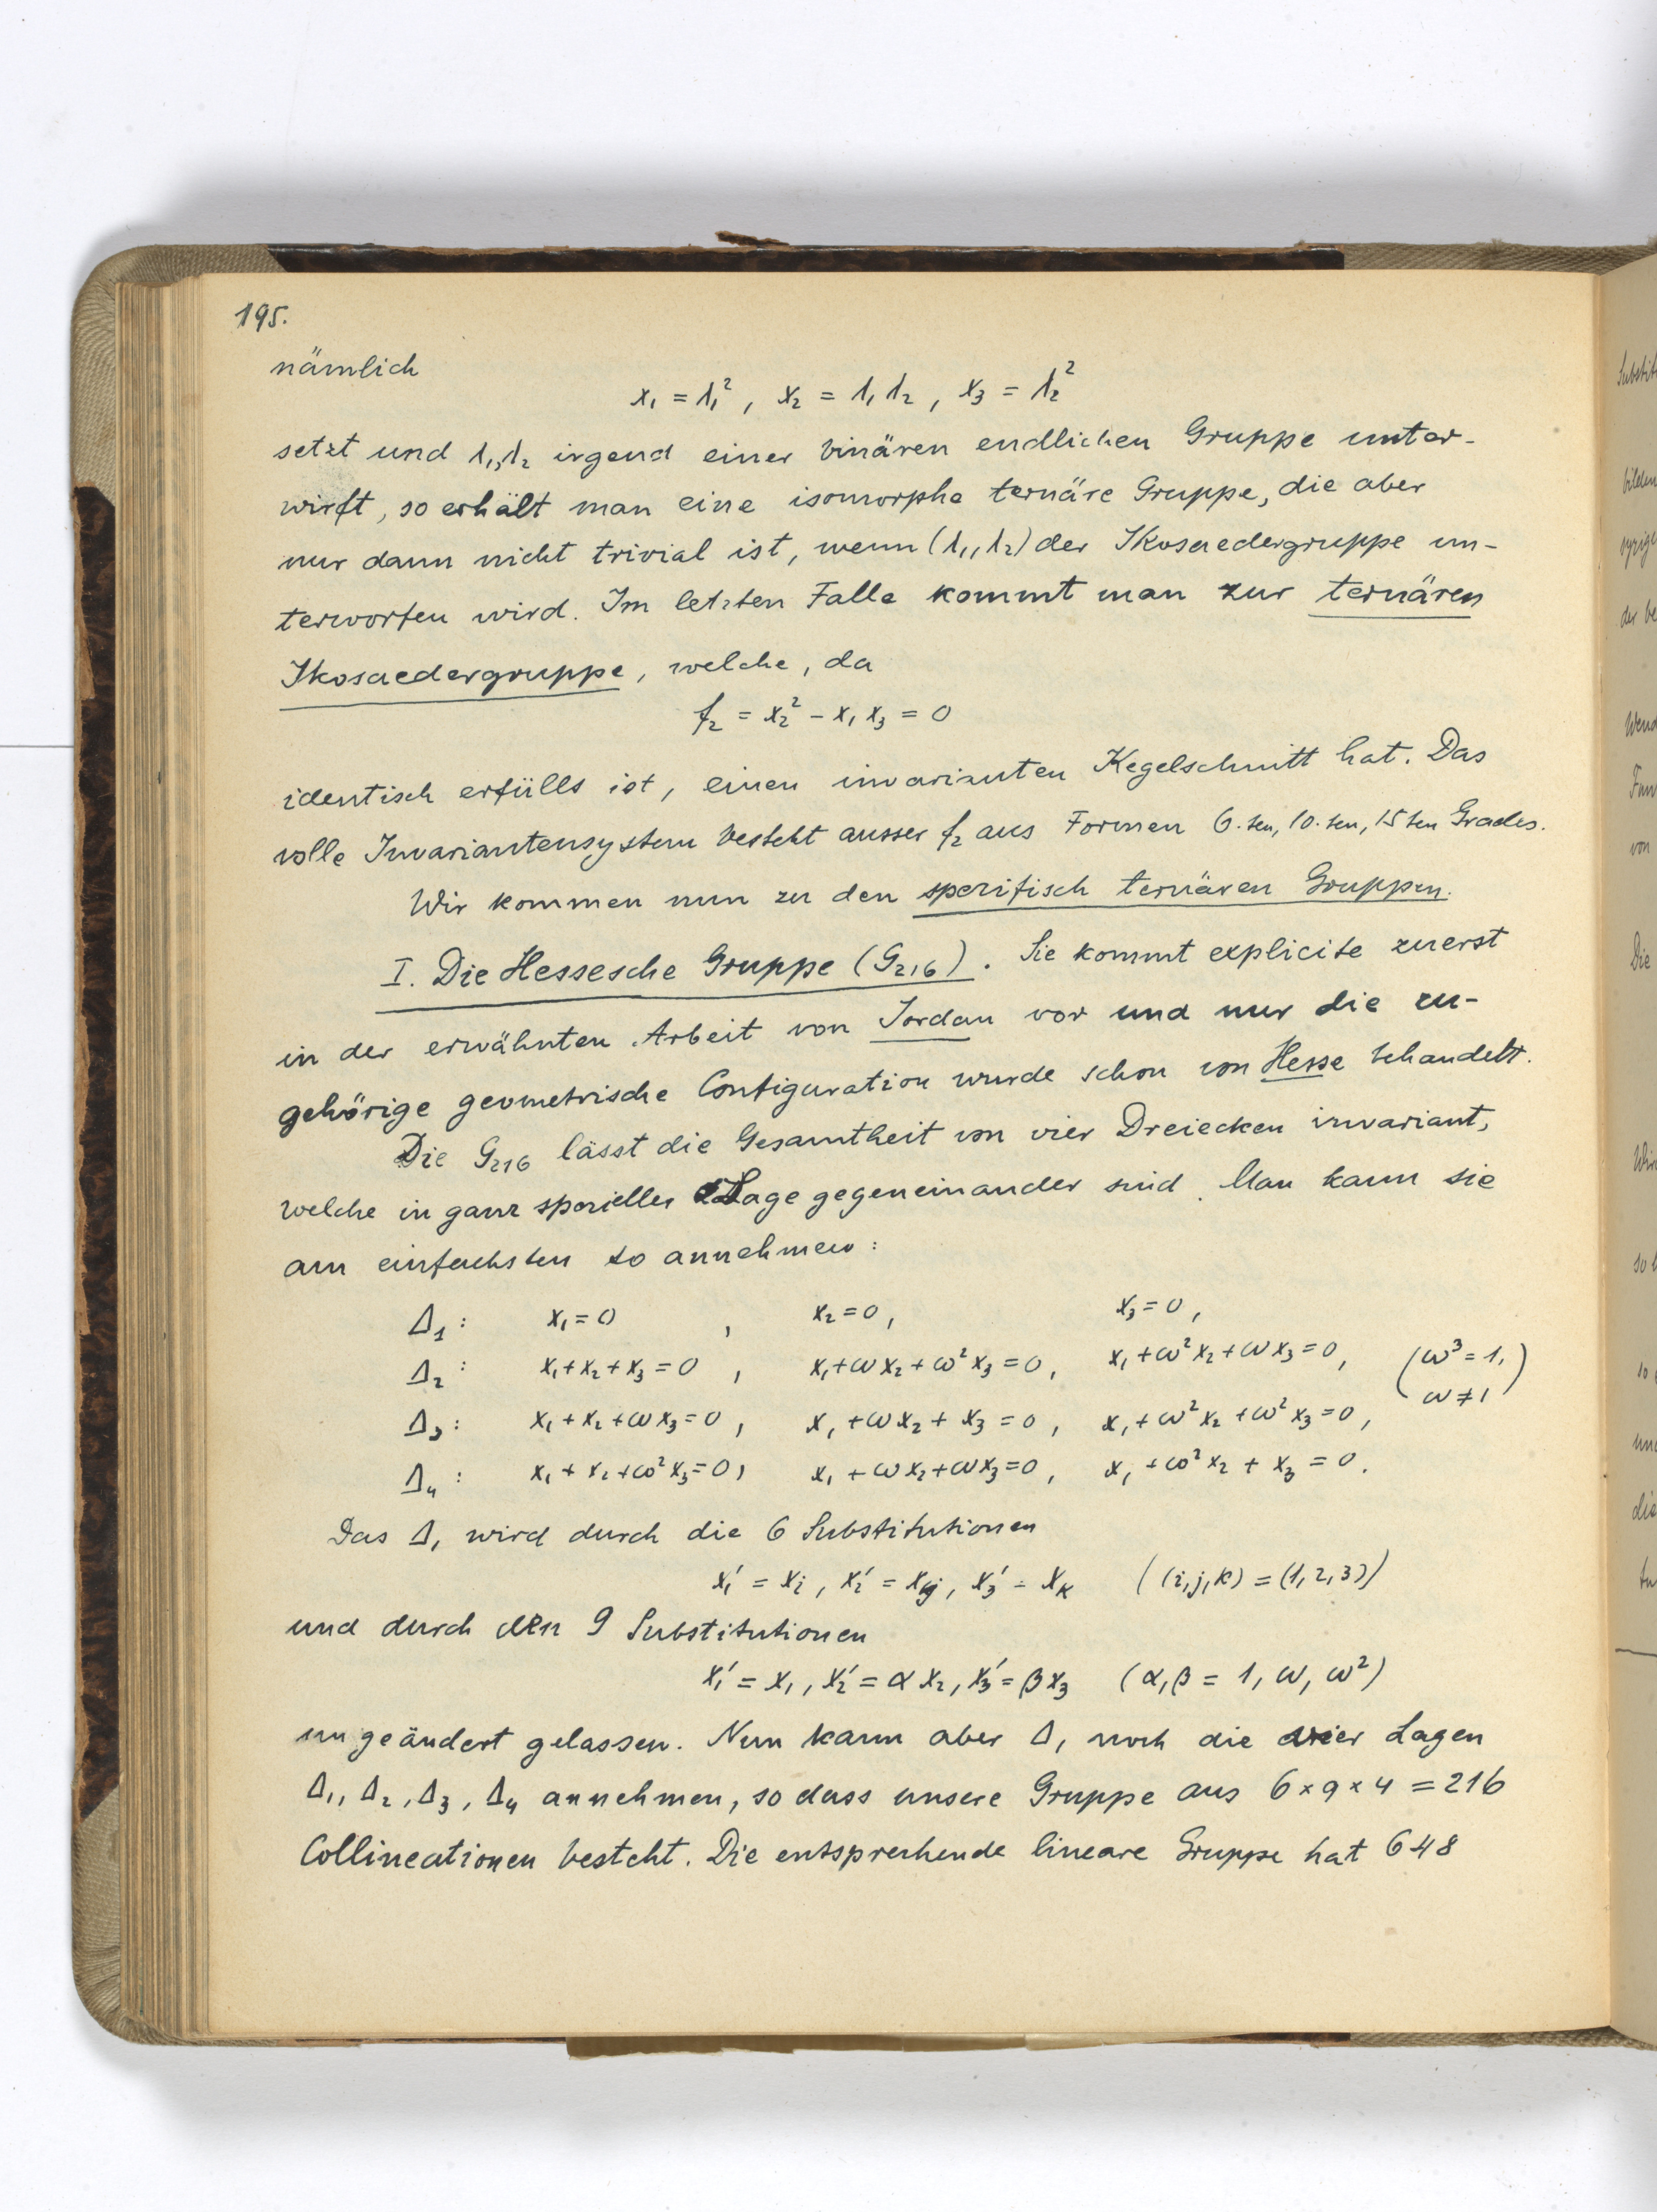 195.
nämlich
x₁ = λ₁², x₂ = λ₁λ₂, x₃ = λ₂²
setzt und λ₁, λ₂ irgend einer binären endlichen Gruppe unter-
wirft, so erhält man eine isomorphe ternäre Gruppe, die aber
nur dann nicht trivial ist, wenn (λ₁, λ₂) der Ikosaedergruppe un-
terworfen wird. Im letzten Falle kommt man zur ternären
Ikosaedergruppe, welche, da
f₂ = x₂² - x₁x₃ = 0
identisch erfüllt ist, einen invarianten Kegelschnitt hat. Das
volle Invariantensystem besteht ausser f₂ aus Formen 6.ten, 10.ten, 15ten Grades.
Wir kommen nun zu den spezifisch ternären Gruppen.
I. Die Hessesche Gruppe (G₂₁₆). Sie kommt explicite zuerst
in der erwähnten Arbeit von Jordan vor und nur die zu-
gehörige geometrische Configuration wurde schon von Hesse behandelt.
Die G₂₁₆ lässt die Gesamtheit von vier Dreiecken invariant,
welche in ganz spezieller Lage gegeneinander sind. Man kann sie
am einfachsten so annehmen:
Δ₁: x₁ = 0 , x₂ = 0, x₃ = 0,
Δ₂: x₁ + x₂ + x₃ = 0 , x₁ + ωx₂ + ω²x₃ = 0, x₁ + ω²x₂ + ωx₃ = 0, (ω³ = 1, ω ≠ 1)
Δ₃: x₁ + x₂ + ωx₃ = 0 , x₁ + ωx₂ + x₃ = 0 , x₁ + ω²x₂ + ω²x₃ = 0,
Δ₄: x₁ + x₂ + ω²x₃ = 0, x₁ + ωx₂ + ωx₃ = 0, x₁ + ω²x₂ + x₃ = 0.
Das Δ₁ wird durch die 6 Substitutionen
x₁′ = xᵢ, x₂′ = xⱼ, x₃′ = xₖ ((i, j, k) = (1, 2, 3))
und durch den 9 Substitutionen
x₁′ = x₁, x₂′ = αx₂, x₃′ = βx₃ (α, β = 1, ω, ω²)
ungeändert gelassen. Nun kann aber Δ₁ noch die vier Lagen
Δ₁, Δ₂, Δ₃, Δ₄ annehmen, so dass unsere Gruppe aus 6 × 9 × 4 = 216
Collineationen besteht. Die entsprechende lineare Gruppe hat 648